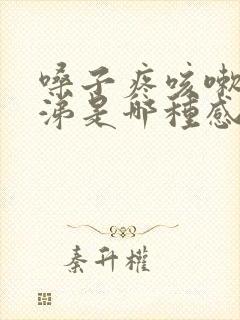 嗓子疼咳嗽
涕是哪種感
秦升權